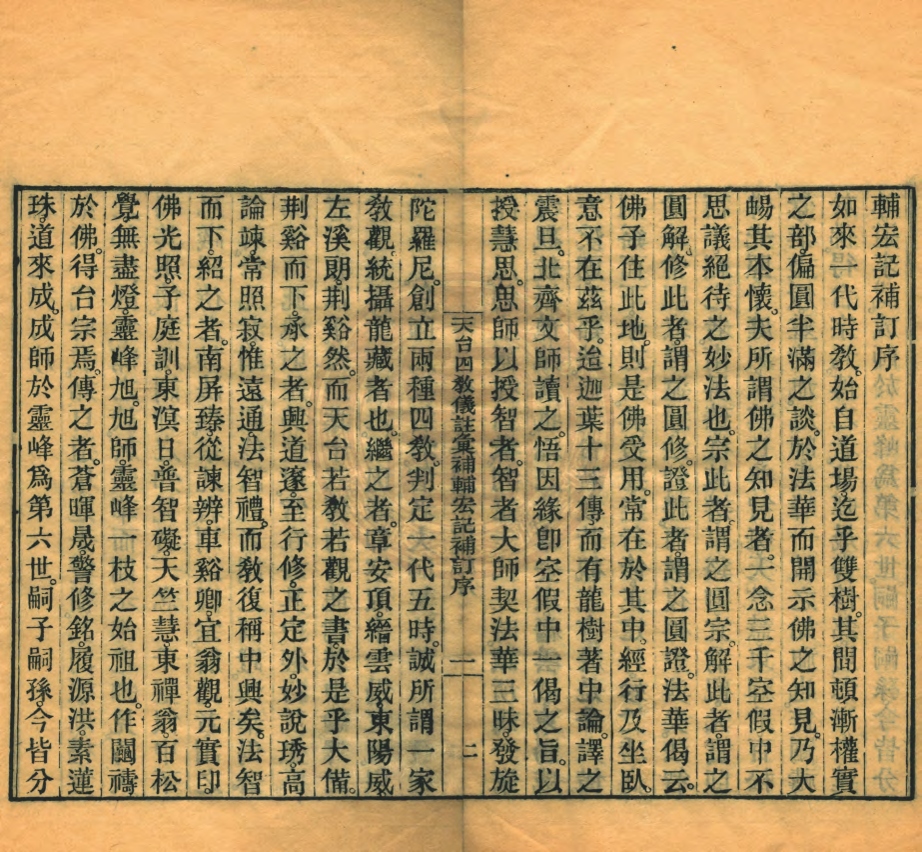 輔宏記補訂序
如來一代時教。始自道場。迄乎雙樹。其間頓漸權實
之部。偏圓半滿之談。於法華而開示佛之知見。乃大
暢其本懷。夫所謂佛之知見者。一念三千空假中不
思議絕待之妙法也。宗此者。謂之圓宗。解此者。謂之
圓解。修此者。謂之圓修。證此者。謂之圓證。法華偈云。
佛子住此地。則是佛受用。常在於其中。經行及坐臥。
意不在茲乎。迨迦葉十三傳。而有龍樹著中論。譯之
震旦。北齊文師讀之。悟因緣卽空假中一偈之旨。以
授慧思。思師以授智者。智者大師契法華三昧。發旋
天台四教儀註彙補輔宏記補訂序 一 二
陀羅尼。創立兩種四教。判定一代五時。誠所謂一家
教觀。統攝龍藏者也。繼之者。章安頂。縉雲威。東陽威。
左溪朗。荆谿然。而天台若教若觀之書。於是乎大備。
荆谿而下。承之者。興道邃。至行修。正定外。妙說琇。高
論竦。常照寂。惟遠通法智禮。而教復稱中興矣。法智
而下。紹之者。南屏臻。從諫辨。車谿卿。宜翁觀。元實印。
佛光照。子庭訓。東溟日。普智礙。天竺慧。東禪翁。百松
覺。無盡燈。靈峰旭。旭師。靈峰一枝之始祖也。作鬮禱
於佛。得台宗焉。傳之者。蒼暉晟。警修銘。履源洪。素蓮
珠。道來成。成師於靈峰爲第六世。嗣子嗣孫。今皆分